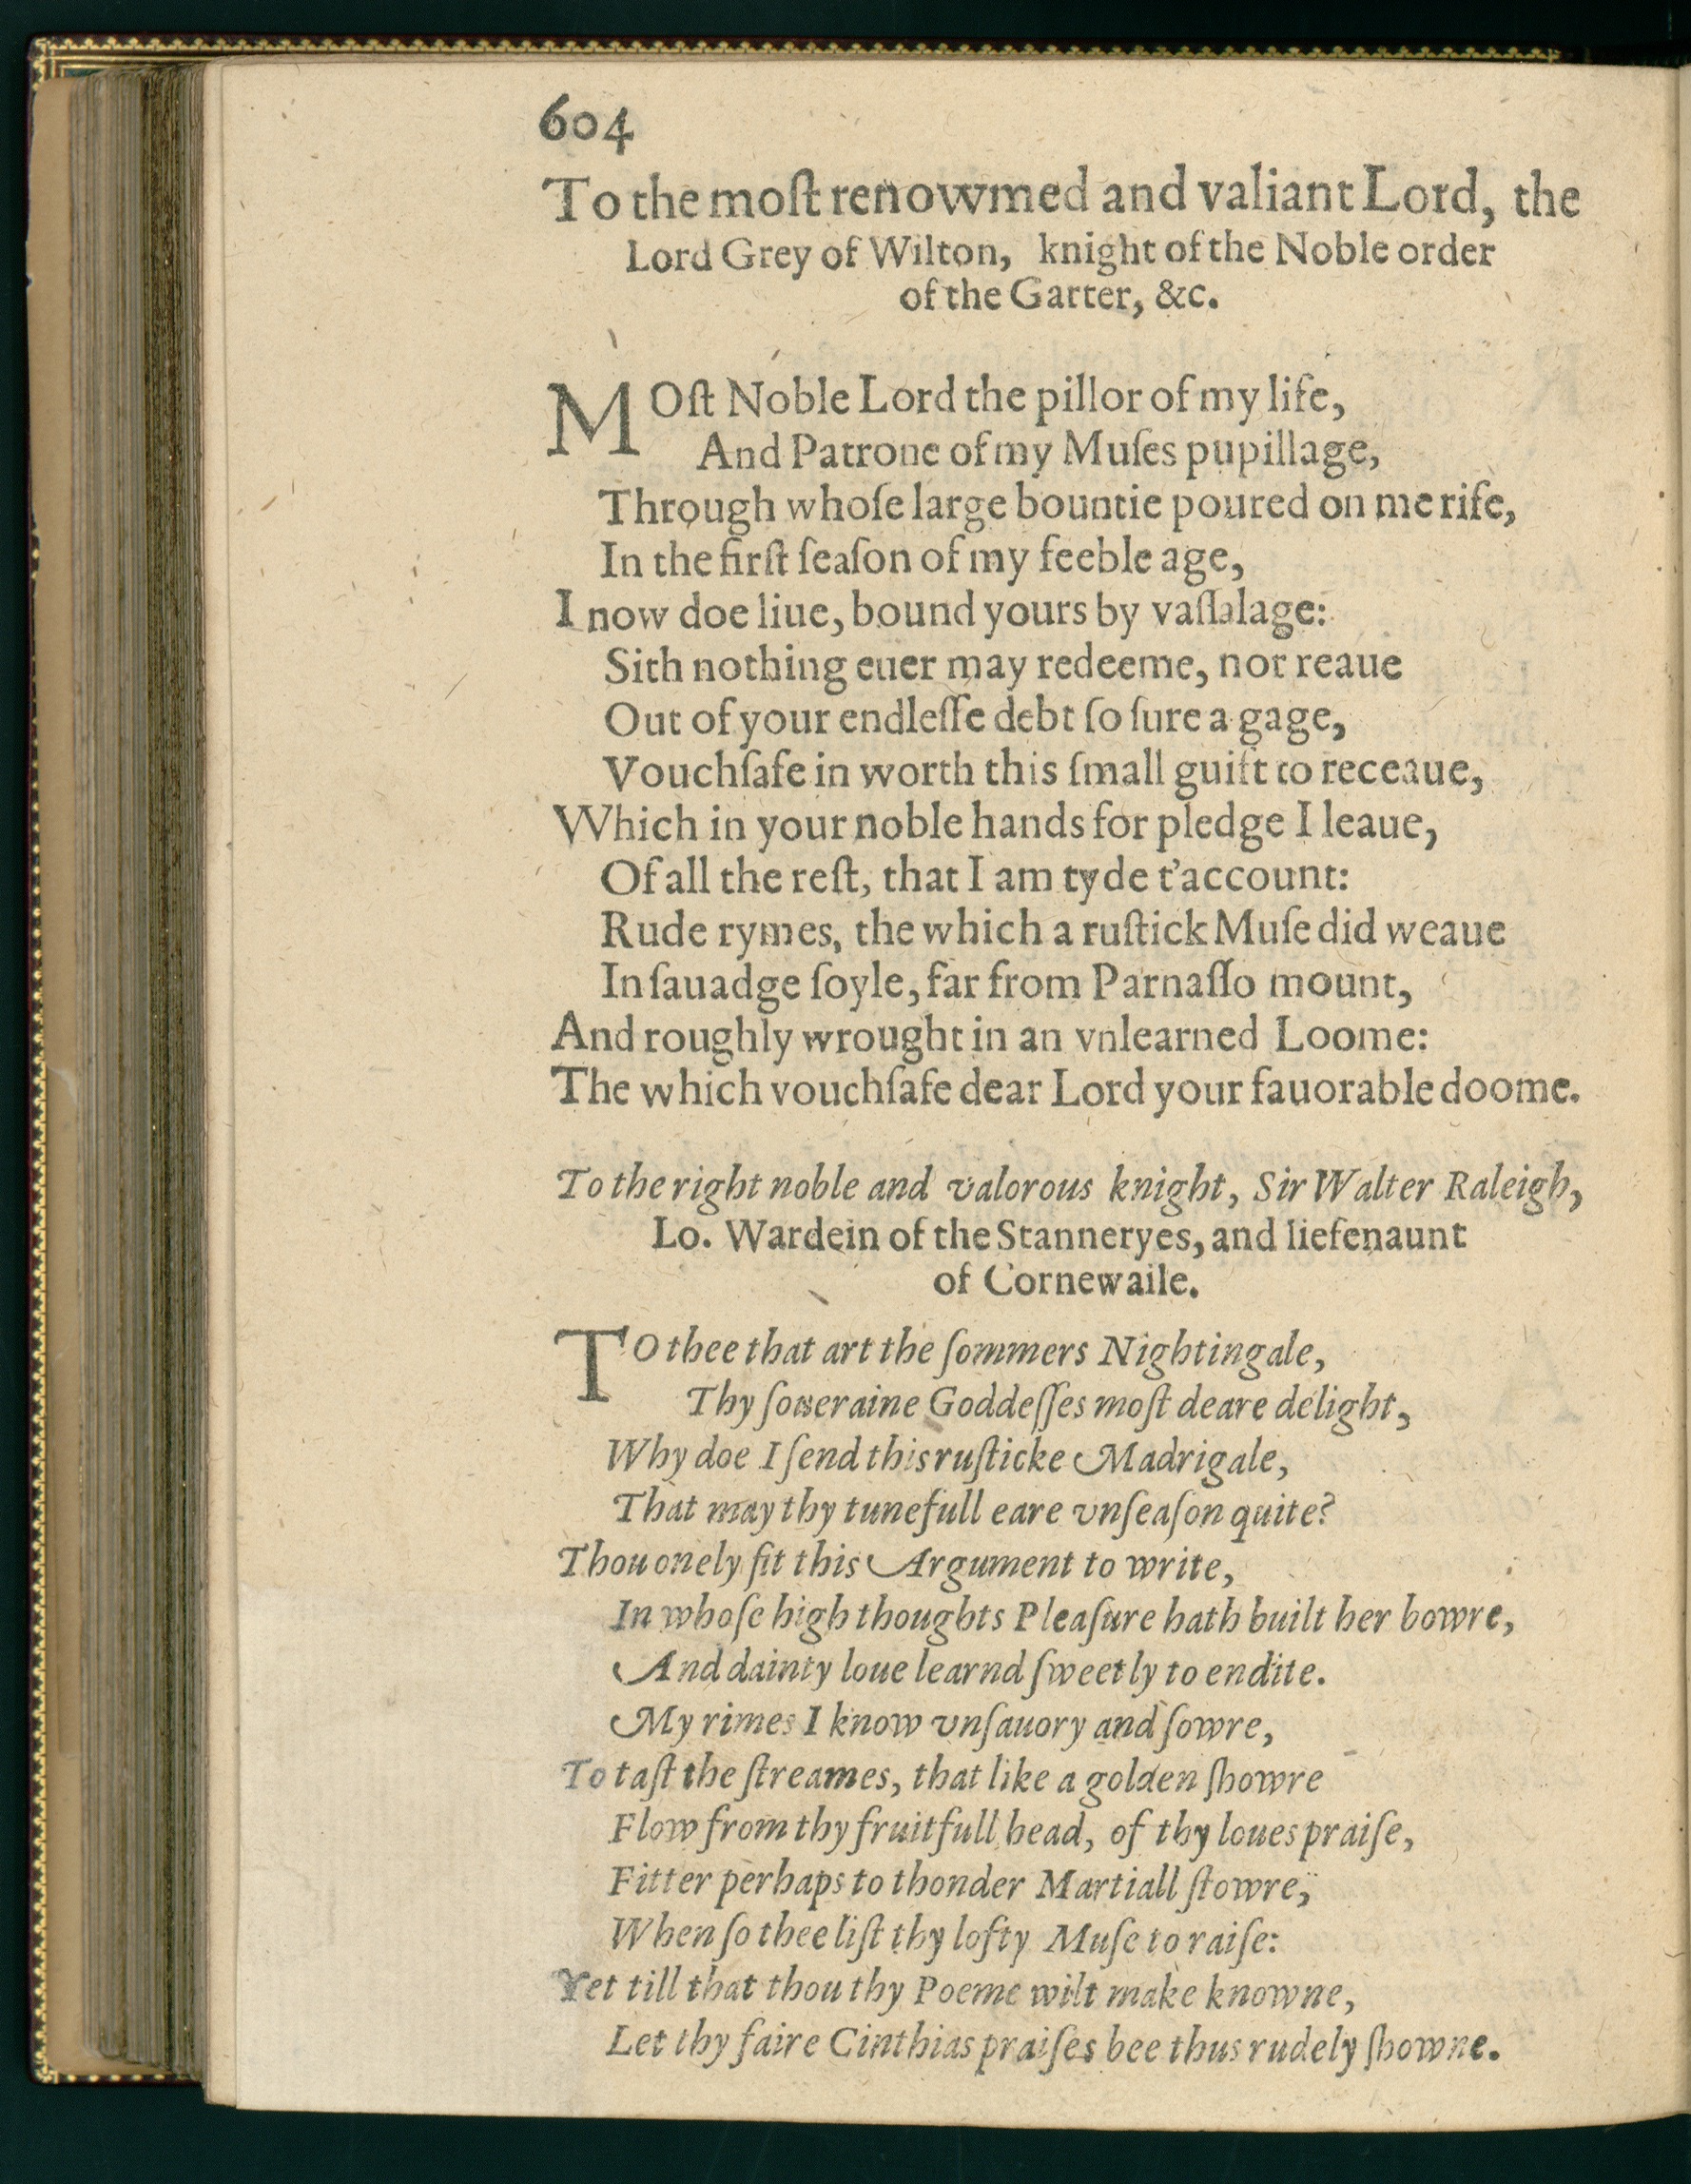 604
To the moſt renowmed and valiant Lord, the
Lord Grey of Wilton, knight of the Noble order
of the Garter, &c.
MOſt Noble Lord the pillor of my life,
And Patrone of my Muſes pupillage,
Through whoſe large bountie poured on me rife,
In the firſt ſeaſon of my feeble age,
I now doe liue, bound yours by vaſſalage:
Sith nothing euer may redeeme, nor reaue
Out of your endleſſe debt ſo ſure a gage,
Vouchſafe in worth this ſmall guift to receaue,
Which in your noble hands for pledge I leaue,
Of all the reſt, that I am tyde t'account:
Rude rymes, the which a ruſtick Muſe did weaue
In ſauadge ſoyle, far from Parnaſſo mount,
And roughly wrought in an vnlearned Loome:
The which vouchſafe dear Lord your fauorable doome.
To the right noble and valorous knight, Sir Walter Raleigh,
Lo. Wardein of the Stanneryes, and liefenaunt
of Cornewaile.
TO thee that art the ſommers Nightingale,
Thy ſoueraine Goddeſſes moſt deare delight,
Why doe I ſend this ruſticke Madrigale,
That may thy tunefull eare vnſeaſon quite?
Thou onely fit this Argument to write,
In whoſe high thoughts Pleaſure hath built her bowre,
And dainty loue learnd ſweetly to endite.
My rimes I know vnſauory and ſowre,
To taſt the ſtreames, that like a golden ſhowre
Flow from thy fruitfull head, of thy loues praiſe,
Fitter perhaps to thonder Martiall ſtowre,
When ſo thee liſt thy lofty Muſe to raiſe:
Yet till that thou thy Poeme wilt make knowne,
Let thy faire Cinthias praiſes bee thus rudely ſhowne.